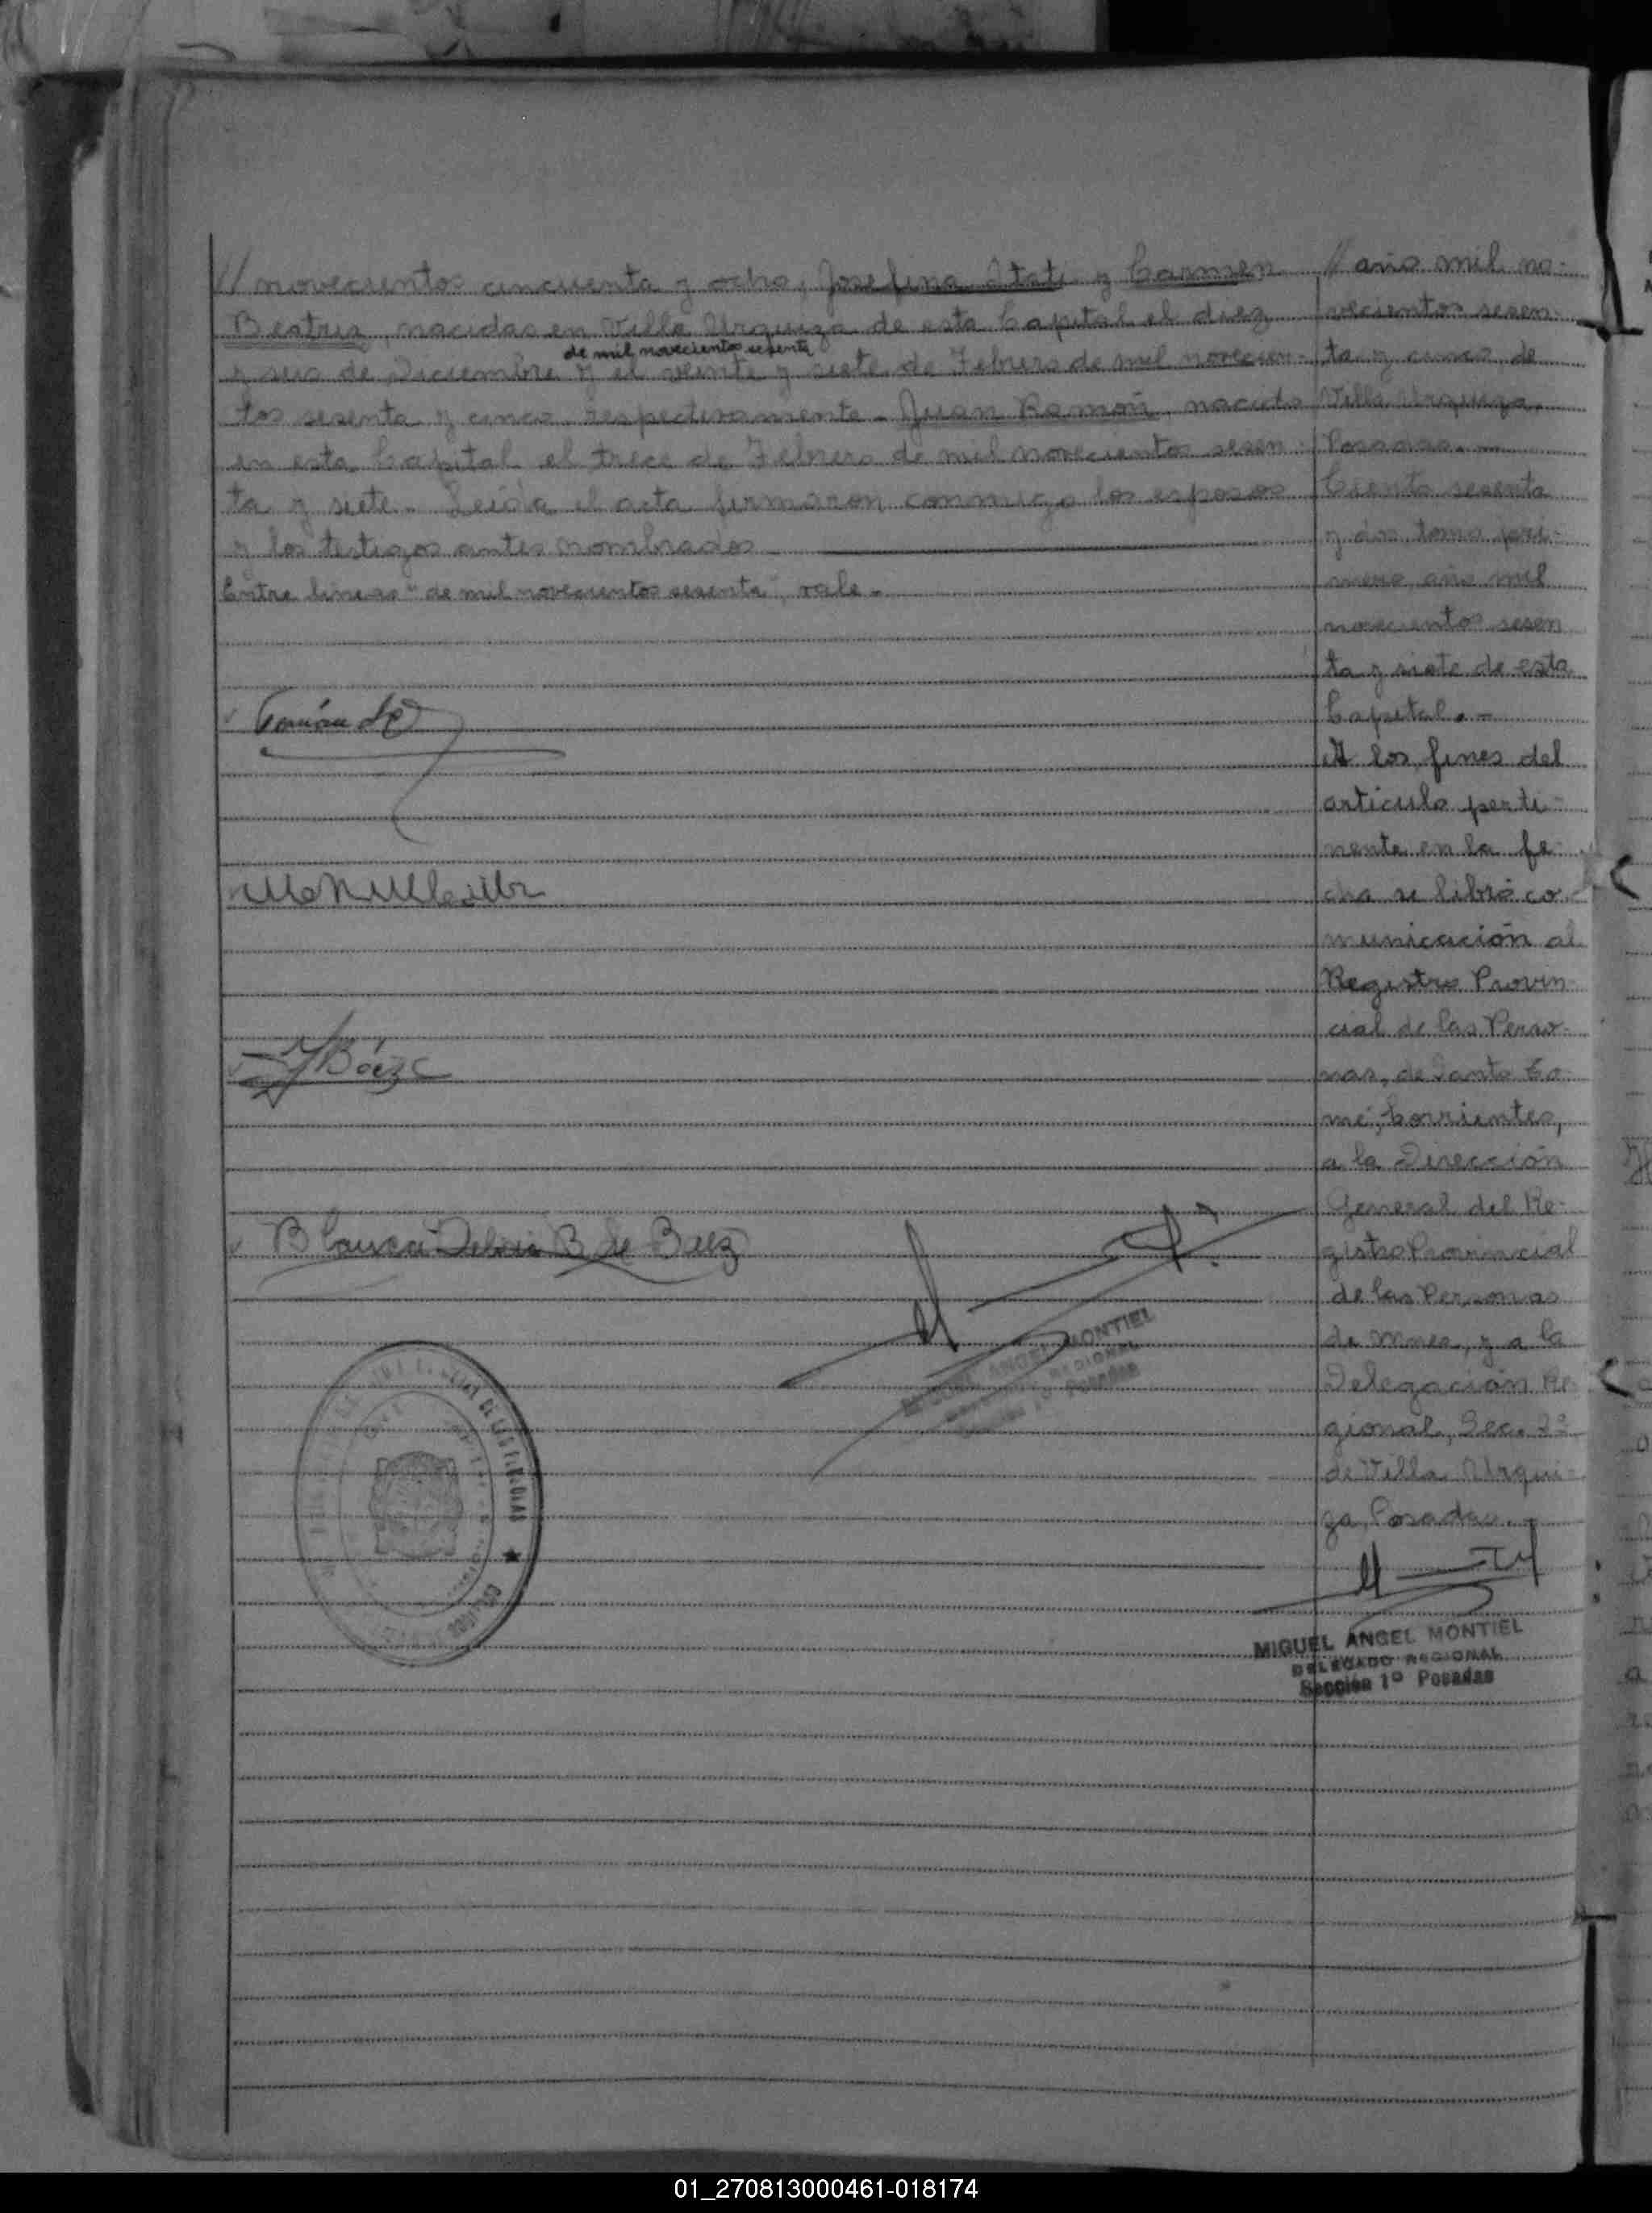 // novecientos cincuenta y ocho, Joselina Itati y Carmen
Beatriz, nacidas en Villa Urquiza de esta Capital el diez
de mil novecientos sesenta
y seis de Diciembre y el veinte y siete de Febrero de mil novecien-
tos sesenta y cinco respectivamente. Juan Ramón, nacido
en esta Capital el trece de Febrero de mil novecientos sesen-
ta y siete. Leída el acta firmaron conmigo los esposos
y los testigos antes nombrados
Entre lineas "de mil novecientos sesenta", vale.
Blanca Delia B de Baez
Báez
MIGUEL ANGEL MONTIEL
REGIONAL
Posadas
// año mil no-
vecientos sesen-
ta y cinco, de
Villa Urquiza.
Posadas.-
Ciento sesenta
y dos, tomo pri-
mero, año mil
novecientos sesen
ta y siete de esta
Capital.-
A los fines del
artículo perti-
nente en la fe-
cha se libró co-
municación al
Registro Provin-
cial de las Perso-
nas, de Santo To-
mé, Corrientes,
a la Dirección
General del Re-
gistro Provincial
de las Personas
de Mnes, y a la
Delegación Re
gional, Sec. 2ª
de Villa Urqui-
za, Posadas.-
MIGUEL ANGEL MONTIEL
DELEGADO REGIONAL
Sección 1º Posadas
01_270813000461-018174